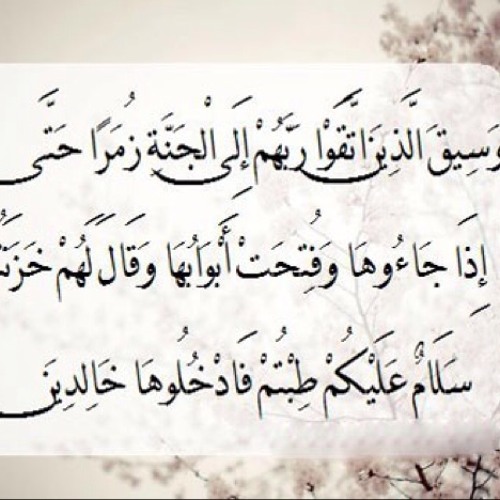 وَسِيقَ الَّذِينَ اتَّقَوْا رَبَّهُمْ إِلَى الْجَنَّةِ زُمَرًا حَتَّى
إِذَا جَاءُوهَا وَفُتِحَتْ أَبْوَابُهَا وَقَالَ لَهُمْ
سَلَامٌ عَلَيْكُمْ طِبْتُمْ فَادْخُلُوهَا خَالِدِينَ